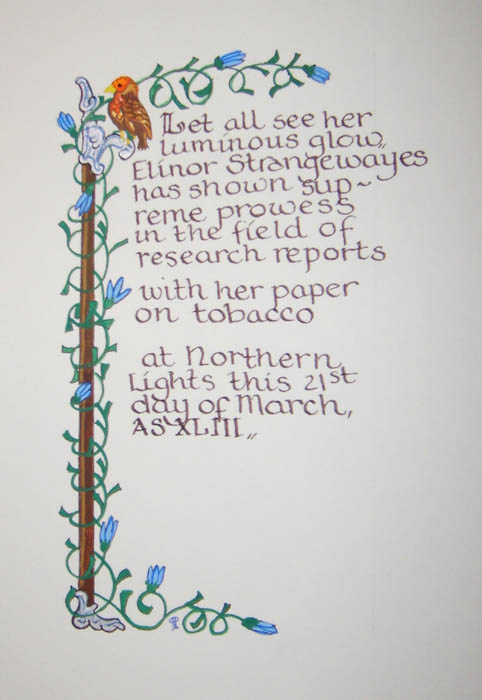 Let all see her
luminous glow,,
Elinor Strangewayes
has shown sup~
reme prowess
in the field of
research reports
with her paper
on tobacco
at Northern
Lights this 21st
day of March,
AS XLIII,,